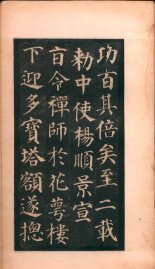 功百其倍矣至二載
勑中使楊順景宣
旨令禪師於花萼樓
下迎多寶塔額遂摠